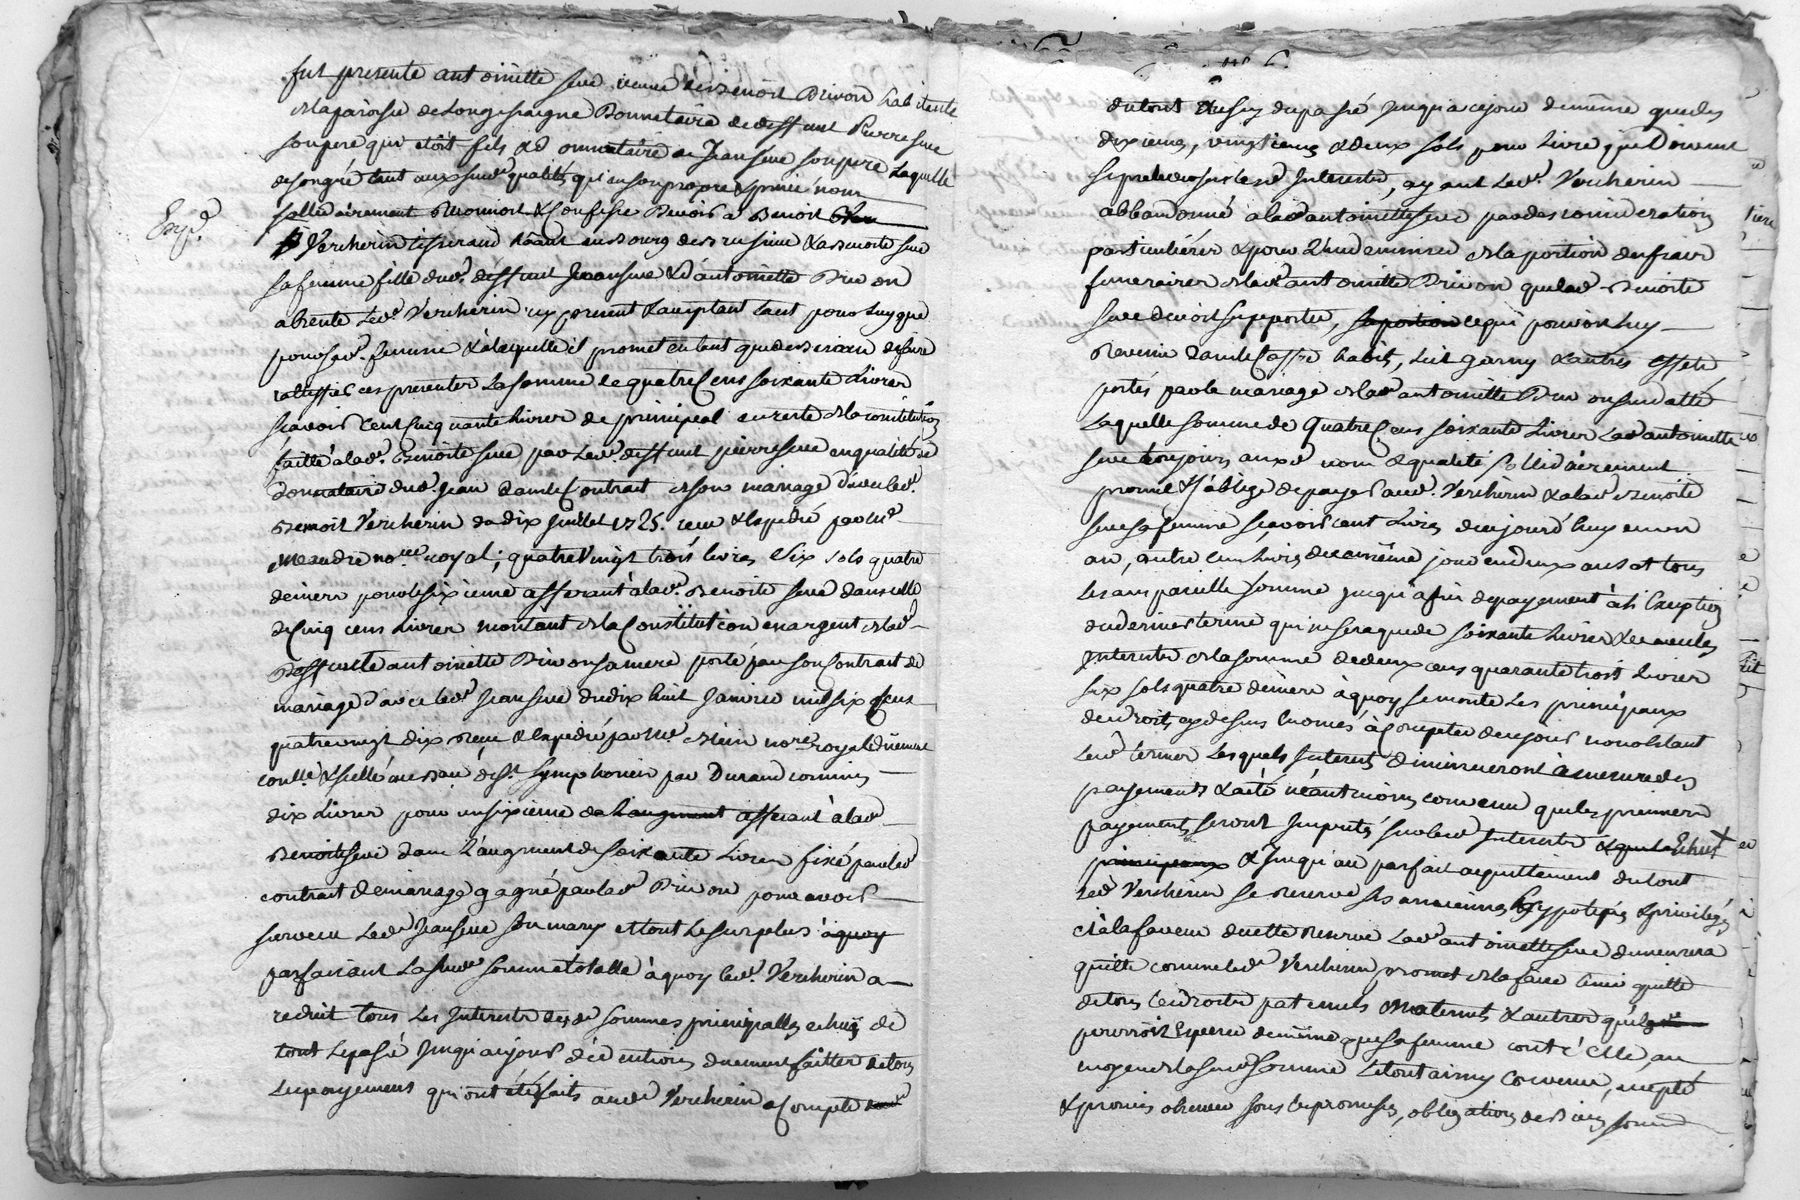 fut presente antoinette sève veuve de benoit Brivon habitante
de la paroisse de Longessaigne Donnetaire de deffunt Pierre seve
son pere qui etoit fils & donnataire de Jean seve son pere Laquelle
de son gré tant aux susd. qualités qu'en son propre & privé nom
sollidairement reconnoit & Confesse devoir a Benoit
Vercherin tisserand héant au Bourg de & Benoite seve
sa femme fille dud. deffunt Jean seve & d'antoinette Brivon
absente Led. Vercherin icy present & acceptant tant pour luy que
pour sad. femme & à laquelle il promet en tant que de besoin de faire
ratiffier ces presentes La somme de quatre Cens soixante Livres
scavoir Cent Cinquante Livres de principal en reste de la constitution
faitte a lad. Benoite seve par Led. deffunt pierre seve en qualité de
donnataire dud. Jean dans le Contrat de son mariage d'avec led.
Benoit Vercherin du dix Juillet 1725. receu & Expedié par Me
Meandre no.re royal; quatre Vingt trois livres Six sols quatre
deniers pour le sixieme afferant à lad. Benoite seve dans celle
de Cinq cens Livres montant de la Constitution en argent de lad.
Deffunte antoinette Brivon sa mere porté par son Contrat de
mariage d'avec led. Jean seve du dix huit Janvier mil six Cens
quatre vingt dix receu & Expedié par Me no.re royal düement
conllé & scellé au Bau de St. Symphorien par Durand commis
dix Livres pour un sixieme de Laugment afferant à lad.
Benoite seve dans L'augment de soixante Livres fixé par led.
contrat de mariage gagné par lad. Brivon pour avoir
survecu Led. Jean seve son mary et tout Le surplus à quoy
parfaisant La susd. somme totalle à quoy led. Vercherin a
reduit tous Les Interests desd. sommes principalles echus de
tout Le passé Jusqu'aujourd. déductions düement faittes de tous
Les payements qui ont été faits aud. Vercherin a Compte
Exp.d
du tout de passé Jusqu'a ce jour de même que des
dixiemes, vingtiemes & deux sols pour Livre que Doivent
se prelever sur lesd. Interests, ayant Led. Vercherin
abbandonné a lad. antoinette seve par des considerations
particulieres & pour L'indemniser de la portion des fraix
funeraires de lad. antoinette Brivon que lad. Benoite
seve devoit supporter, sa portion ce qui pouvoit luy
Revenir dans le Coffre habits, Lit garny & autres effets
portés par le mariage de lad. antoinette Brivon susdatté
Laquelle somme de Quatre Cens soixante Livres Lad. antoinette
seve toujours auxd. nom & qualité sollidairement
promet & s'oblige de payer aud. Vercherin & a lad. Benoite
seve sa femme scavoir cent Livres d'aujourd'huy en un
an, autre cent livres du même jour en deux ans et tous
Les ans pareille somme jusqu'a fin de payement à l'Exception
du dernier terme qui ne sera que de soixante Livres & avec les
Interests de la somme de deux cens quarante trois Livres
six sols quatre deniers à quoy se monte Les principaux
des droits cy dessus Enoncés à Compter de ce jour nonobstant
Lesd. termes Lesquels Interests diminueront à mesure des
payements & a été néantmoins convenu que les premiers
payements seront Imputés sur lesd. Interests & que les Echus
principaux & Jusqu'au parfait acquittement du tout
Led. Vercherin se reserve ses anciennes hypoteques & privileges
Et à la faveur de cette reserve Lad. antoinette seve demeurera
quitte comme led. Vercherin promet de la faire tenir quitte
de tous Les droits paternels Maternels & autres qu'il
pourroit Esperer de même que sa femme contr'Elle, au
moyen de la susd. somme Le tout ainsy Convenu, accepté
& promis observer sous les promesses, obligations de Biens